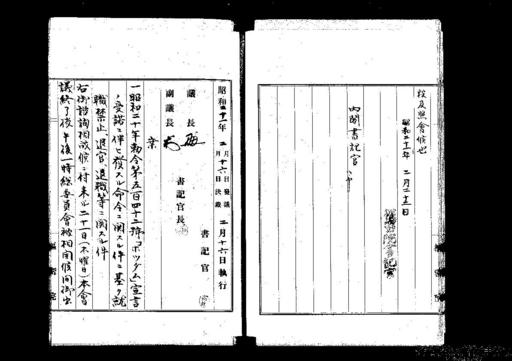 段及照會候也
昭和二十一年二月二十一日
内閣書記官
昭和二十一年二月十六日發議
二月十六日決裁
二月十六日執行
議長
副議長
書記官長
書記官
案
一昭和二十年勅令第五百四十二號「ポツダム」宣言
ノ受諾ニ伴ヒ發スル命令ニ關スル件ニ基ク就
職禁止、退官、退職等ニ關スル件
右御諮詢相成候ニ付来ル二十一日(木曜日)本會
議終了後午後一時總委員會被相開候間御出